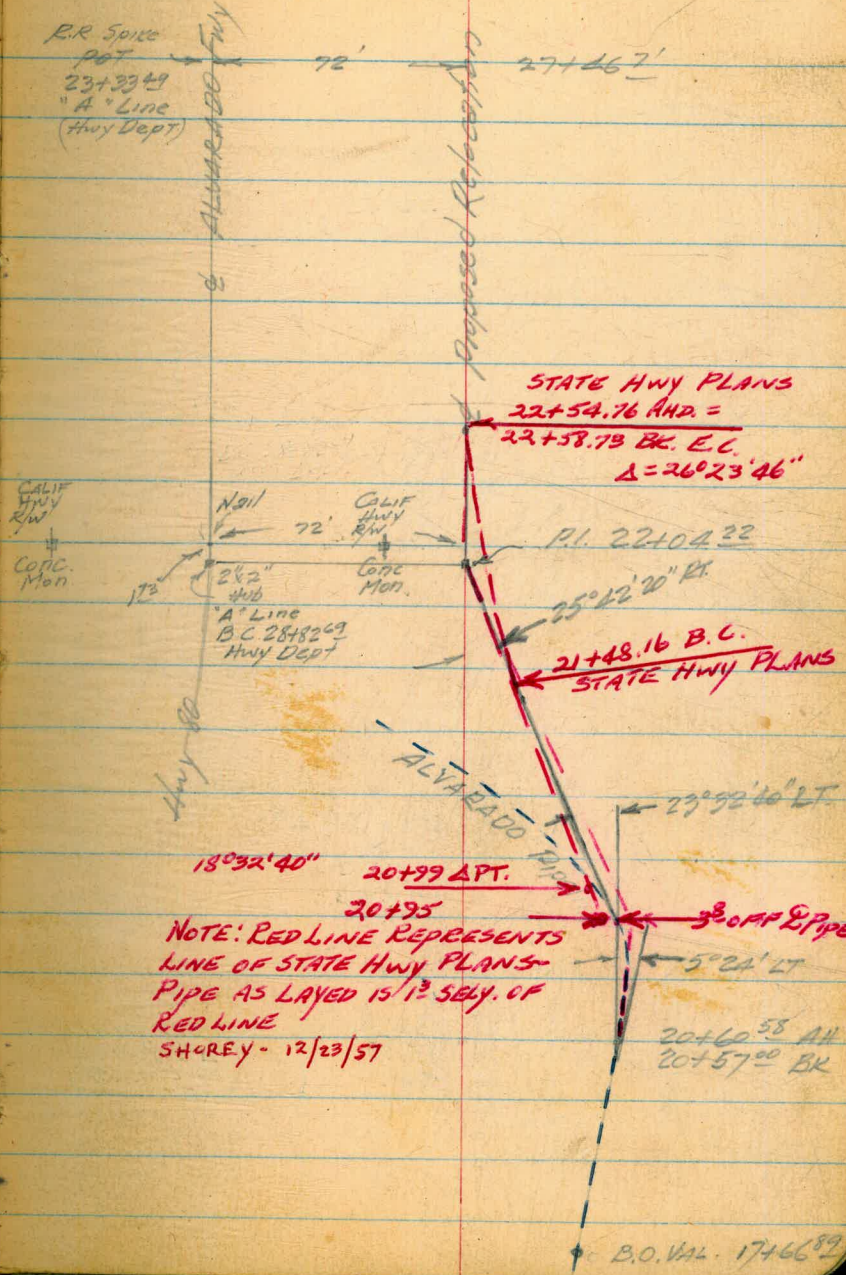 R.R Spike
POT
23+33 49
"A" Line
(Hwy Dept)
72'
27+46 7'
℄ ALVARADO Fwy
℄ Proposed Relocation
STATE HWY PLANS
22+54.76 AHD. =
22+58.73 BK. E.C.
Δ=26°23'46"
CALIF
HWY
R/W
Conc.
Mon
Nail
72'
CALIF
HWY
R/W
Conc
Mon.
P.I. 22+04 22
1 73
2"x2"
Hub
"A" Line
B.C 28+82 69
Hwy Dept
25°42'20" RT.
21+48.16 B.C.
STATE HWY PLANS
Hwy-80
ALVARADO PIPE
23°32'40" LT.
18°32'40"
20+99 Δ PT.
20+95
3 8 OFF ℄ PIPE
NOTE: RED LINE REPRESENTS
LINE OF STATE HWY PLANS-
PIPE AS LAYED IS 1 3 SELY. OF
RED LINE
SHOREY - 12/23/57
5°24' LT
20+60 58 AH
20+57 00 BK
B.O. VAL. 17+66 89